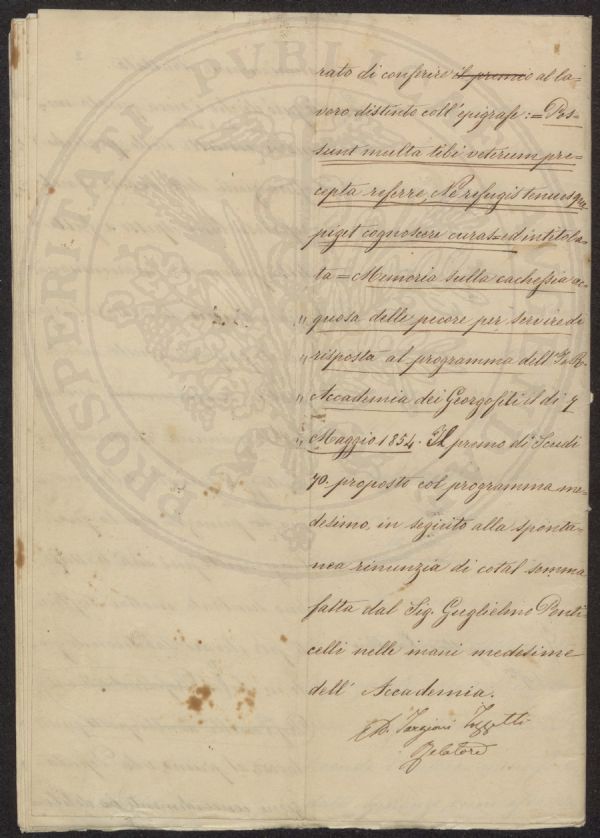 rato di conferire il premio al la-
voro distinto coll'epigrafe:= Pos-
sunt multa tibi veterum pre-
cepta referre, Ne refugis tenuosque
piget cognoscere curas= ed intitola-
ta = Memoria sulla cachessia ac-
" quosa delle pecore per servire di
" risposta al programma dell'I. e R.
" Accademia dei Georgofili il di 7
" Maggio 1854. Il premo di Scudi
70. proposto col programma me-
desimo, in seguito alla sponta-
nea rinunzia di cotal somma
fatta dal Sig. Guglielmo Ponti-
celli nelle mani medesime
dell'Accademia.
Targioni Tozzetti
Relatore
PROSPERITATI PUBLI